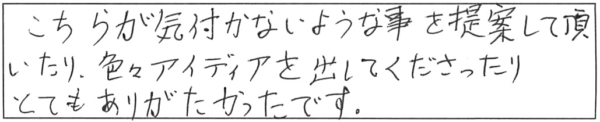 こちらが気付かないような事を提案して頂
いたり、色々アイディアを出してくださったり
とてもありがたかったです。